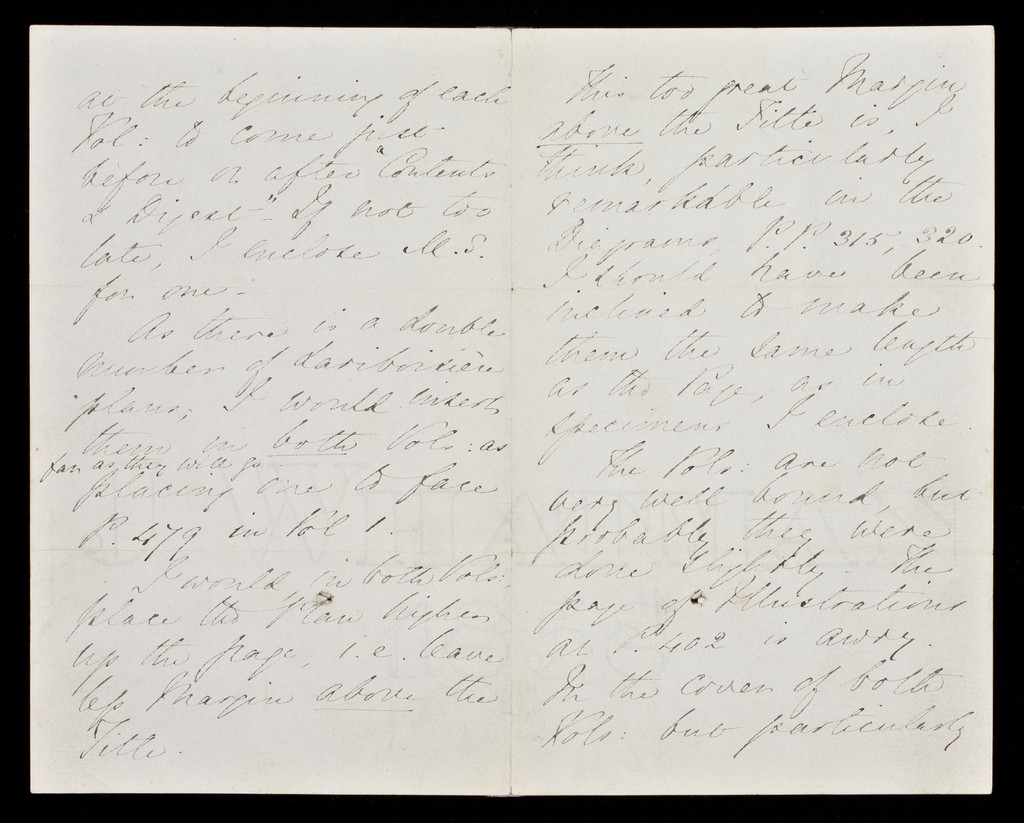 at the beginning of each
Vol: to come just
before or after "Contents
& Digest". If not too
late, I enclose M.S.
for one.
As there is a double
number of Lariboisière
plans, I would insert
them in both Vols: as
far as they will go
placing one to face
P. 479 in Vol 1.
I would, in both Vols:
place the Plan higher
up the page, i.e. leave
less Margin above the
Title.
This too great Margin
above the Title is, I
think, particularly
remarkable in the
Diagrams, P.P. 315, 320.
I should have been
inclined to make
them the same length
as the Page, as in
specimens I enclose.
The Vols: are not
very well bound, but
probably they were
done slightly. The
page of Illustrations
at P. 402 is awry.
In the cover of both
Vols: but particularly